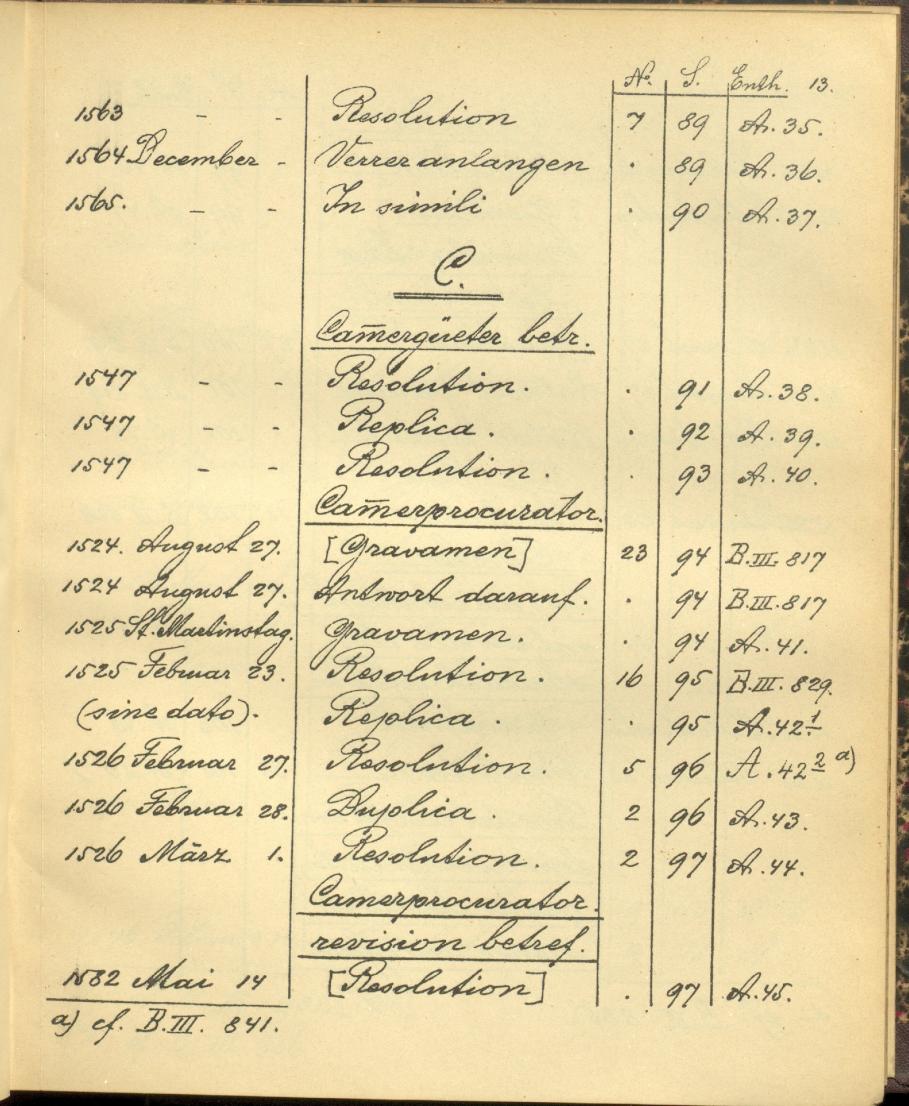 No. S. Enth. 13.
1563 - - Resolution 7 89 A. 35.
1564 December - Verrer anlangen . 89 A. 36.
1565. - - In simili . 90 A. 37.
C.
Cam̄ergüeter betr.
1547 - - Resolution. . 91 A. 38.
1547 - - Replica. . 92 A. 39.
1547 - - Resolution. . 93 A. 40.
Cam̄erprocurator.
1524. August 27. [Gravamen] 23 94 B.III. 817
1524 August 27. Antwort darauf. . 94 B.III. 817
1525 St. Martinstag. Gravamen. . 94 A. 41.
1525 Februar 23. Resolution. 16 95 B.III. 829.
(sine dato). Replica. . 95 A. 42 1
1526 Februar 27. Resolution. 5 96 A. 42 2 a)
1526 Februar 28. Duplica. 2 96 A. 43.
1526 März 1. Resolution. 2 97 A. 44.
Camerprocurator.
revision betref.
1582 Mai 14 [Resolution] . 97 A. 45.
a) cf. B.III. 841.